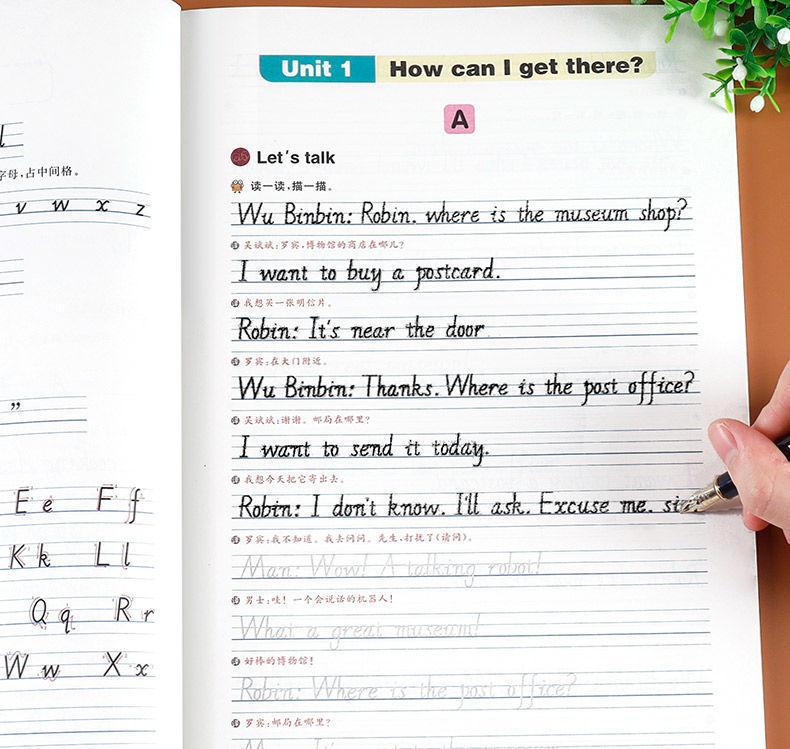 l
字母，占中间格。
v w x z
”
E e F f
K k L l
Q q R r
W w X x
Unit 1 How can I get there?
A
Let's talk
读一读，描一描。
Wu Binbin: Robin. where is the museum shop?
译 吴斌斌：罗宾，博物馆的商店在哪儿？
I want to buy a postcard.
译 我想买一张明信片。
Robin: It's near the door
译 罗宾：在大门附近。
Wu Binbin: Thanks. Where is the post office?
译 吴斌斌：谢谢。邮局在哪里？
I want to send it today.
译 我想今天把它寄出去。
Robin: I don't know. I'll ask. Excuse me. sir
译 罗宾：我不知道。我去问问。先生，打扰了（请问）。
Man: Wow! A talking robot!
译 男士：哇！一个会说话的机器人！
What a great museum!
译 好棒的博物馆！
Robin: Where is the post office?
译 罗宾：邮局在哪里？